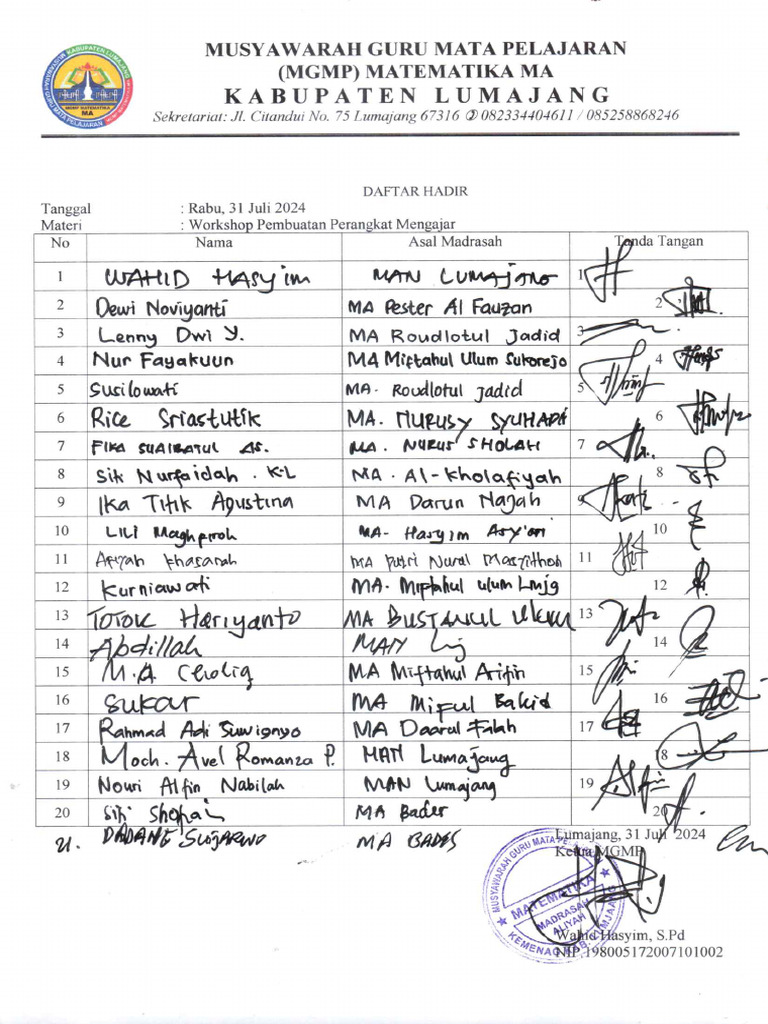 MUSYAWARAH GURU MATA PELAJARAN
(MGMP) MATEMATIKA MA
KABUPATEN LUMAJANG
Sekretariat: Jl. Citandui No. 75 Lumajang 67316 ✆ 082334404611 / 085258868246
DAFTAR HADIR
Tanggal : Rabu, 31 Juli 2024
Materi : Workshop Pembuatan Perangkat Mengajar
No Nama Asal Madrasah Tanda Tangan
1 WAHID HASyim MAN LUMAjang 1
2 Dewi Noviyanti MA Pester Al Fauzan 2
3 Lenny Dwi Y. MA Roudlotul Jadid 3
4 Nur Fayakuun MA Miftahul Ulum Sukorejo 4
5 Susilowati MA. Roudlotul Jadid 5
6 Rice Sriastutik MA. NURUSY SYUHADA 6
7 FIKA MA. NURUS SHOLAH 7
8 Siti Nurfaidah. K.L MA. Al-Kholafiyah 8
9 Ika Titik Agustina MA Darun Najah 9
10 LILI Maghfiroh MA. Hasyim Asy'ari 10
11 Afiyah Khasanah MA Putri Nurul Masyithoh 11
12 Kurniawati MA. Miftahul ulum Lmjg 12
13 TOTOK Hariyanto MA BUSTANUL ULUM 13
14 Abdillah MAN Lmj 14
15 M.A Choliq MA Miftahul Arifin 15
16 Sukar MA Miful Bakid 16
17 Rahmad Adi Suwignyo MA Daarul Falah 17
18 Moch. Avel Romanza P. MAN Lumajang 18
19 Nouri Alfin Nabilah MAN Lumajang 19
20 Siti MA Bades 20
21. DADANG SUDJARWO MA BADES
Lumajang, 31 Juli 2024
Ketua MGMP
MUSYAWARAH GURU MATA PELAJARAN
MATEMATIKA
MADRASAH
ALIYAH
KEMENAG KAB. LUMAJANG
Wahid Hasyim, S.Pd
NIP.198005172007101002